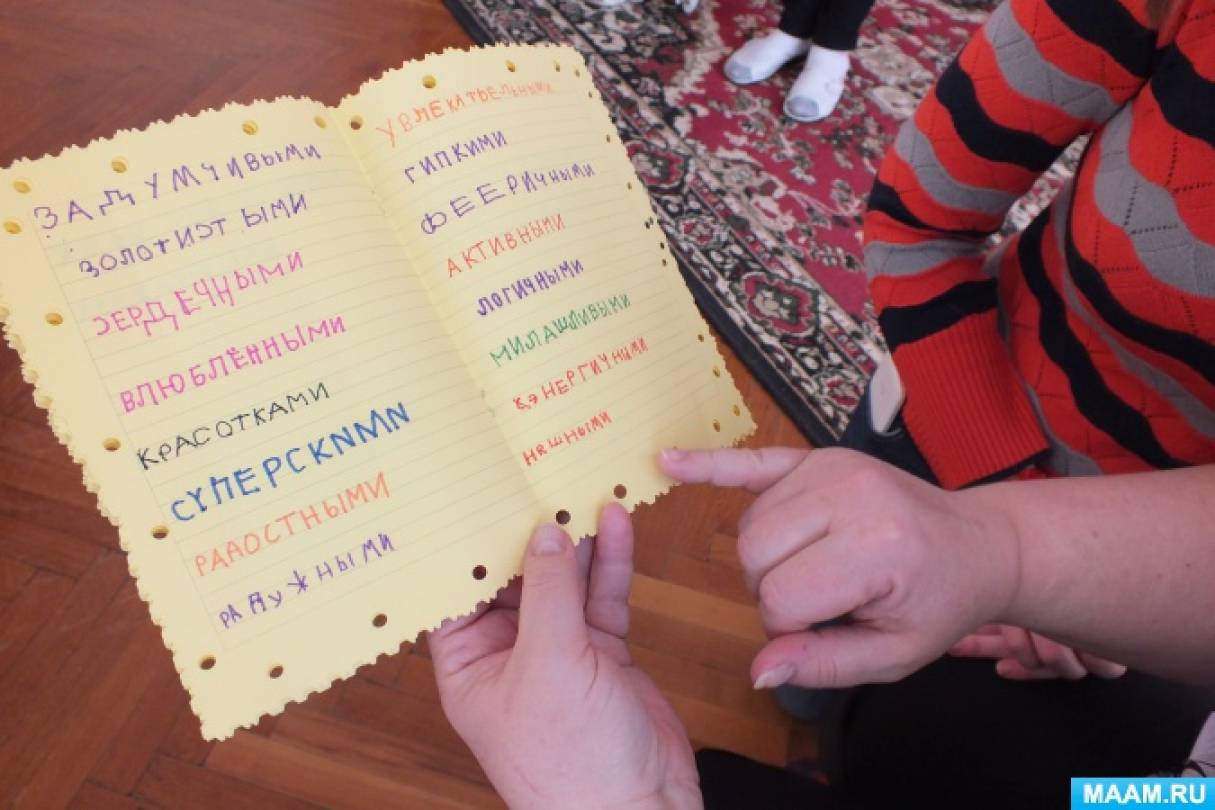 ЗАДУМЧИВЫМИ
ЗОЛОТИЭТ ЫМИ
СЕРДЕЧНЫМИ
ВЛЮБЛЁННЫМИ
КРАСОТКАМИ
СУПЕРСКИМИ
РАДОСТНЫМИ
РАДУЖНЫМИ
УВЛЕКАТЬЕЛЬНЫМИ
ГИПКИМИ
ФЕЕРИЧНЫМИ
АКТИВНЫМИ
ЛОГИЧНЫМИ
МИЛАШЛИВЫМИ
ЭНЕРГИЧНИМИ
НЯШНЫМИ
MAAM.RU